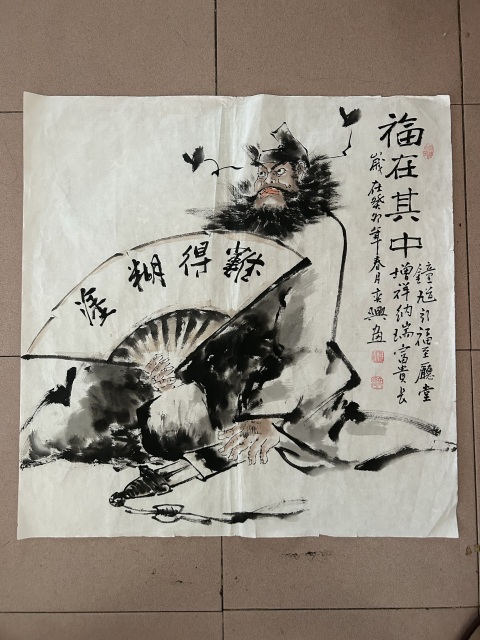 福在其中
鐘馗引福至廳堂
增祥納瑞富貴長
歲在癸卯年春月興畫
難得糊塗